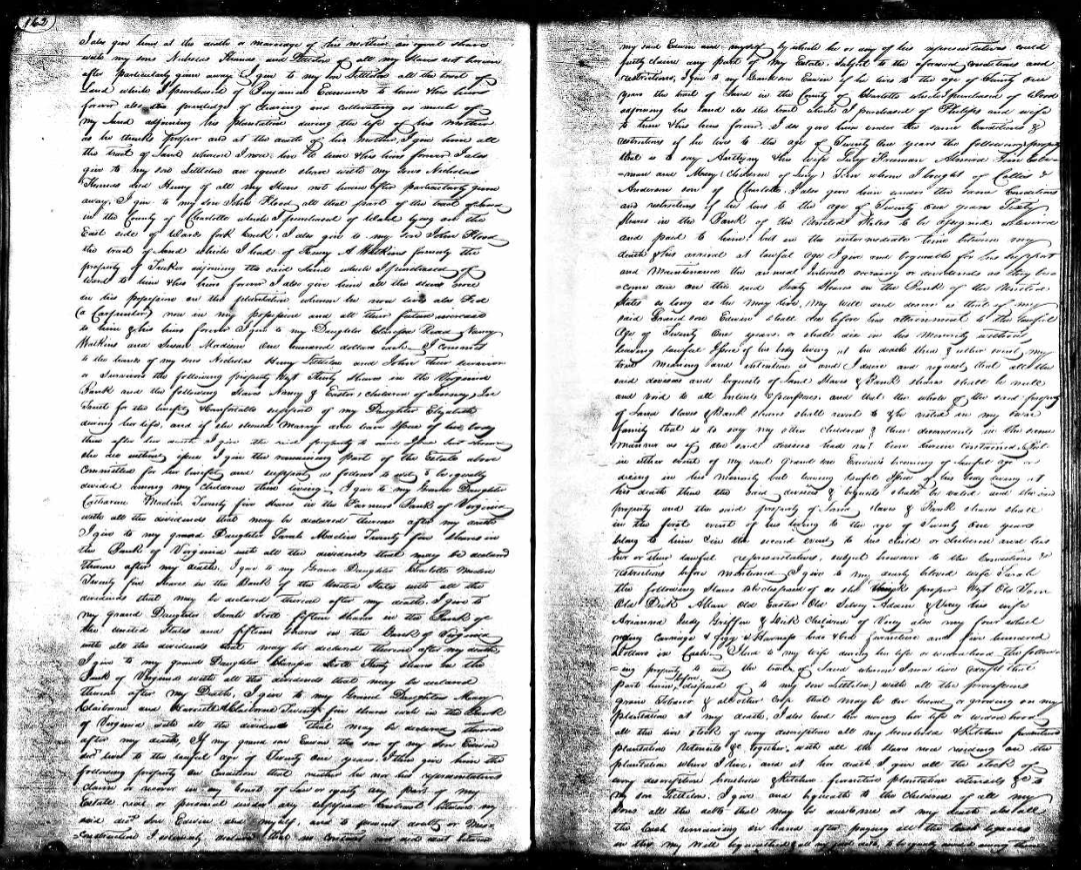 162
I also give him at the death or marriage of his mother an equal share
with my sons Nicholas Thomas and Littleton of all my Slaves not herein
after particularly given away. I give to my son Littleton all the tract of
Land which I purchased of Benjamin to him & his heirs
forever also the priviledge of clearing and cultivating as much of
my land adjoining his plantation during the life of his mother
as he thinks proper and at the death of his mother, I give him all
the tract of Land whereon I now live to him & his heirs forever I also
give to my son Littleton an equal share with my Sons Nicholas
Thomas and Henry of all my Slaves not herein after particularly given
away. I give to my son John Flood all that part of the tract of land
in the County of Charlotte which I purchased of lying on the
East side of Wards fork Creek. I also give to my son John Flood
the tract of land which I had of Henry A Watkins formerly the
property of Tucker adjoining the said land which I purchased of
Ward to him & his heirs forever I also give him all the slaves now
in his possession on the plantation whereon he now lives also Fed
(a Carpenter) now in my possession and all their future increase
to him & his heirs forever I give to my Daughter Clarissa Read Nancy
Watkins and Susan Madison One hundred dollars each. I commit
to the hands of my sons Nicholas Henry Littleton and John their survivor
or survivors the following property Viz Thirty shares in the Virginia
Bank and the following Slaves Nancy & Easter (children of
in Trust for the benefit & Comfortable support of my Daughter Elizabeth
during her life, and if she should Marry and leave Issue of her body
then after her death I give the said property to such Issue but should
she die without issue I give the remaining part of the Estate above
committed for her benefit and support as follows to wit, to be equally
divided among my children then living. I give to my Grand Daughter
Catharine Madison Twenty five Shares in the Farmers Bank of Virginia
with all the dividends that may be declared thereon after my death
I give to my grand Daughter Sarah Madison Twenty five shares in
the Bank of Virginia with all the dividends that may be declared
thereon after my death. I give to my Grand Daughter Charlotte Madison
Twenty five Shares in the Bank of the United States with all the
dividends that may be declared thereon after my death. I give to
my grand Daughter Sarah Scott fifteen shares in the Bank of
the United States and fifteen shares in the Bank of Virginia
with all the dividends that may be declared thereon after my death
I give to my grand Daughter Clarissa Scott Thirty shares in the
Bank of Virginia with all the dividends that may be declared
thereon after my Death, I give to my Grand Daughters Mary
Claiborne and Harriett Claiborne Twenty five shares each in the Bank
of Virginia with all the dividends that may be declared thereon
after my death, If my grand son Edwin the son of my son Edwin
decd lives to the lawful age of Twenty One years. I then give him the
following property on Condition that neither he nor his representatives
claim or recover in any Court of Law or equity any part of my
Estate real or personal under any supposed Contract between my
said decd son Edwin and myself, and to prevent doubts or Mis-
construction I solemnly declare that no Contract ever did exist between
my said Edwin and myself by which he or any of his representatives could
justly claim any part of my Estate. Subject to the aforesaid conditions and
restrictions, I give to my Grandson Edwin if he lives to the age of Twenty one
years the tract of Land in the County of Charlotte which I purchased of Wood
adjoining his land also the tract which I purchased of Phillips and wife
to him & his heirs forever. I also give him under the same Conditions &
restrictions if he lives to the age of Twenty One years the following property
that is to say his Wife Lucy Freeman
and Mary (children of Lucy) Tom whom I bought of Collins &
Anderson son of Charlotte, I also give him under the same Conditions
and restrictions if he lives to the age of Twenty One years Sixty
shares in the Bank of the United States to be assigned delivered
and paid to him; but in the intermediate time between my
death & his arrival at lawful age I give and bequeathe for his support
and Maintenance the annual interest accruing or dividends as they be-
come due on the said Sixty Shares in the Bank of the United
States as long as he may live. My will and desire is that if my
said Grand son Edwin shall die before his attainment to the lawful
Age of Twenty One years, or shall die in his Minority without
leaving lawful Issue of his body living at his death then & either event my
true meaning and intention is and I desire and request that all the
said devises and bequests of Land Slaves & Bank shares shall be null
and void to all intents & purposes. And that the whole of the said property
of Land Slaves & Bank shares shall revert to & be vested in my own
family that is to say my other Children & their descendants in the same
manner as if the said devises had not been herein contained. But
in either event of my said Grand son Edwin's becoming of lawful age or
dieing in his Minority but leaving lawful Issue of his body living at
his death then the said devises & bequests shall be valid and the said
property and the said property of Land Slaves & Bank shares shall
in the first event of his living to the age of Twenty One years
belong to him & in the second event to his child or children and his
her or their lawful representatives, subject however to the Conditions &
restrictions before mentioned. I give to my dearly beloved wife Sarah
the following Slaves to be disposed of as she thinks proper Viz Old Tom
Old Dick Allen Old Easter Old Selvey Adam & Viney his wife
Griffin & Dick Children of Viney also my four wheel
riding Carriage & Gigg & Harness furniture and five hundred
Dollars in Cash. I lend to my wife during her life or widowhood the follow-
=ing property to wit the tract of Land whereon I now live except that
part before disposed of to my son Littleton, with all the provisions
grain Tobacco & all other Crop that may be on hand or growing on my
plantation at my death, I also lend her during her life or widowhood
all the live stock of every description all my household & Kitchen furniture
plantation Utensils &c. together with all the Slaves now residing on the
plantation where I live, and at her death I give all the stock of
every description household & Kitchen furniture plantation utensils &c to
my son Littleton. I give and bequeathe to the children of all my
Sons all the debts that may be due to me at my death also all
the Cash remaining on hand after paying all the Cash legacies
in this my Will bequeathed & all my just debts, to be equally divided among them